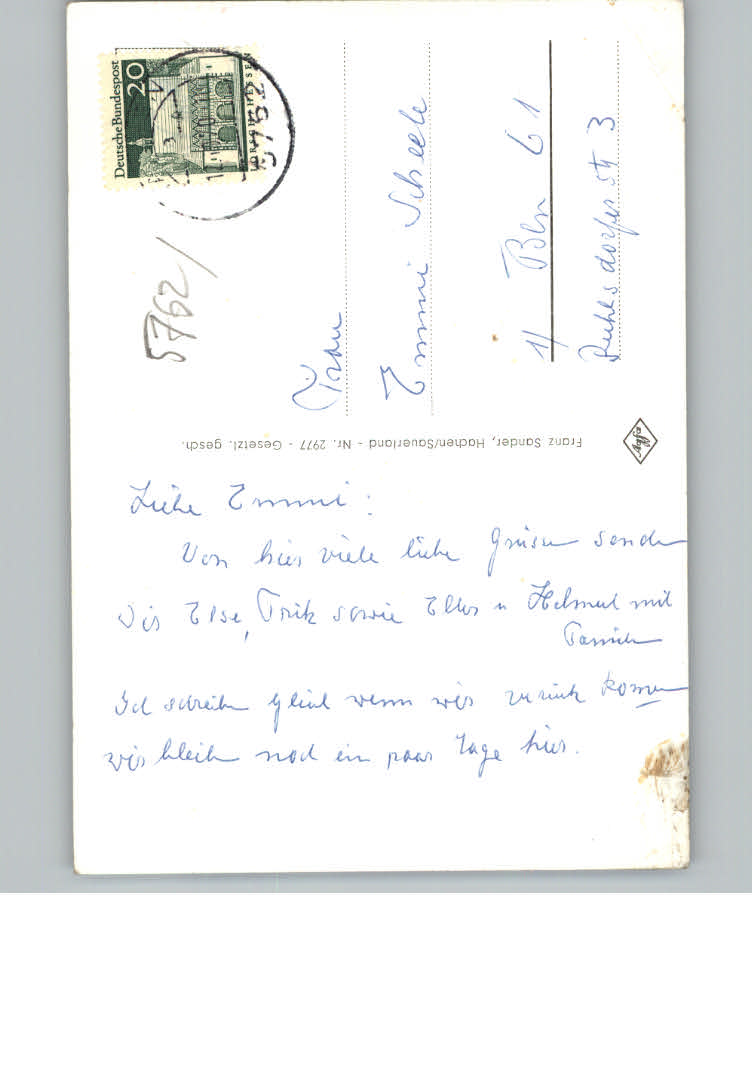 Deutsche Bundespost
20
LORSCH/HESSEN
5762
5762/
Frau
Emmi Scheele
1/ Bln 61
Ruhlsdorfer Str 3
Franz Sander, Hachen/Sauerland - Nr. 2977 - Gesetzl. gesch.
Agfa
Liebe Emmi:
Von hier viele liebe Grüsse senden
Dir Else, Fritz sowie u Helmut mit
Familie
Ich schreibe gleich wenn wir zurück komen
wir bleiben noch ein paar Tage hier.